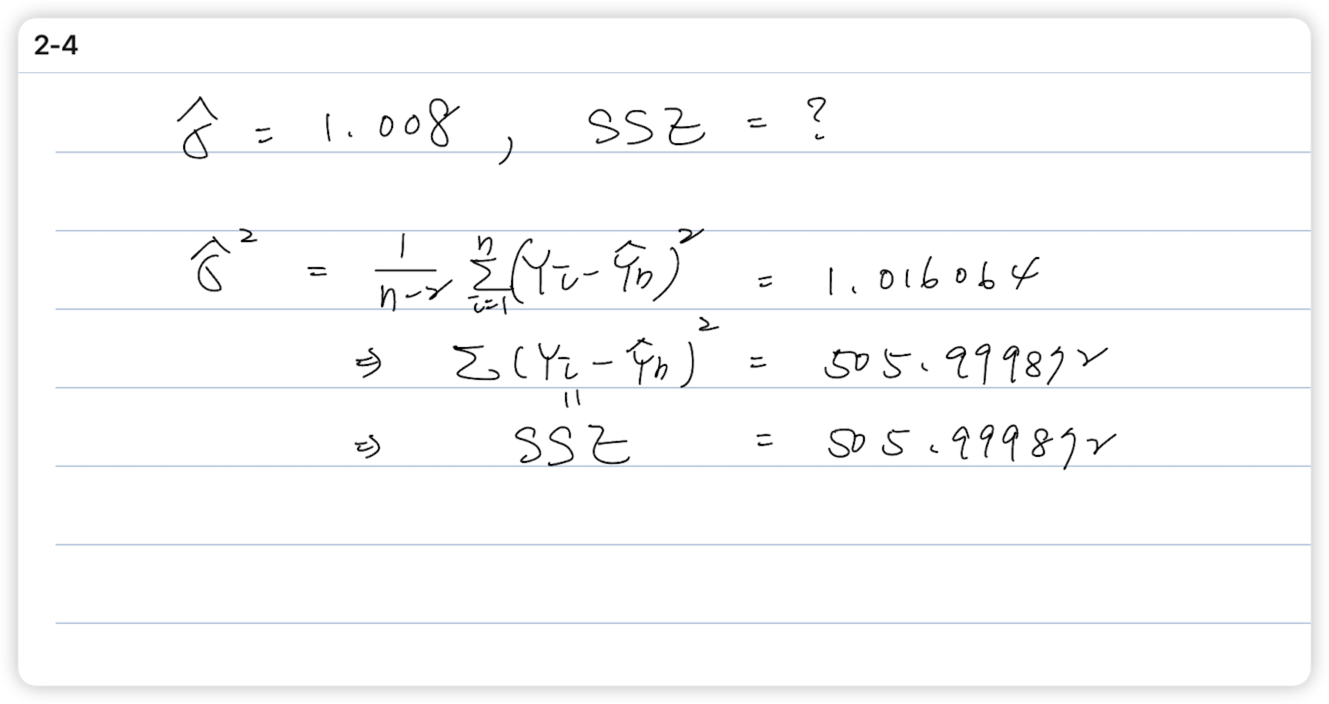 2-4
σ̂ = 1.008 , SSZ = ?
σ̂² = 1/(n-2) Σ_{i=1}^{n} (Yi - Ŷn)² = 1.016064
⇒ Σ(Yi - Ŷn)² = 505.999872
||
⇒ SSZ = 505.999872